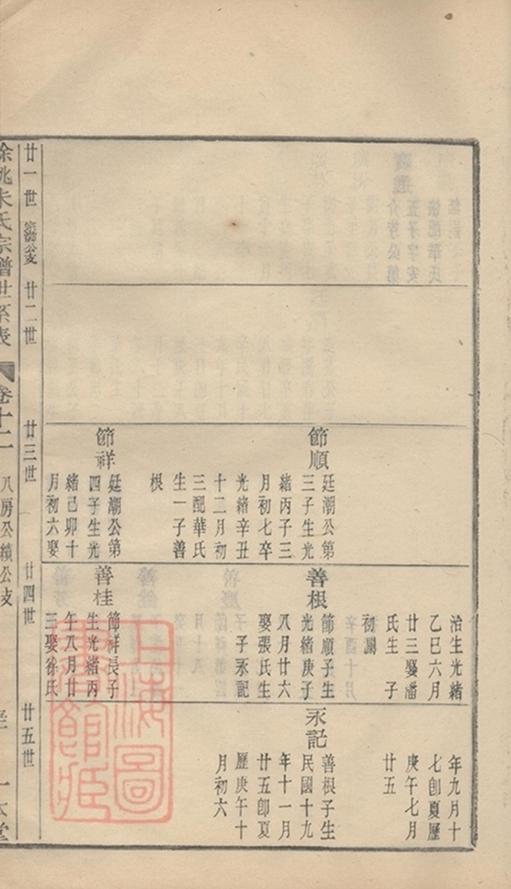 節順
廷潮公第
三子生光
緒丙子三
月初七卒
光緒辛丑
十二月初
三配華氏
生一子善
根
節祥
廷潮公第
四子生光
緒己卯十
月初六娶
治生光緒
乙巳六月
廿三娶潘
氏生子
初關
善根
節順子生
光緒庚子
八月廿六
娶張氏生
子永記
善桂
節祥長子
生光緒丙
午八月廿
三娶徐氏
年九月十
七卽夏歷
庚午七月
廿五
永記
善根子生
民國十九
年十一月
廿五卽夏
歷庚午十
月初六
廿一世
公支
廿二世
廿三世
廿四世
廿五世
餘姚朱氏宗譜世系表
卷十二
八房公績公支
一本堂
上海圖書館藏